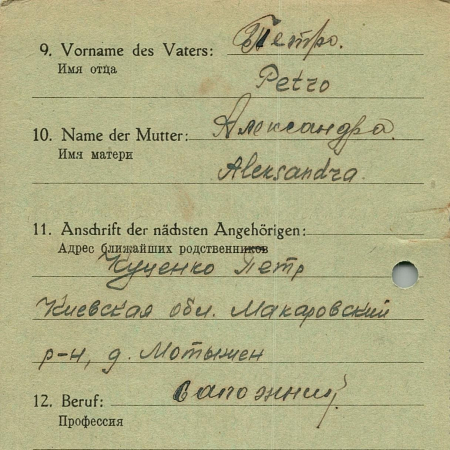 9. Vorname des Vaters: Петро.
Имя отца
Petro
10. Name der Mutter: Александра.
Имя матери
Aleksandra.
11. Anschrift der nächsten Angehörigen:
Адрес ближайших родственников
Куценко Петр
Киевская обл. Макаровский
р-н, д. Мотыжен
12. Beruf: Сапожник
Профессия